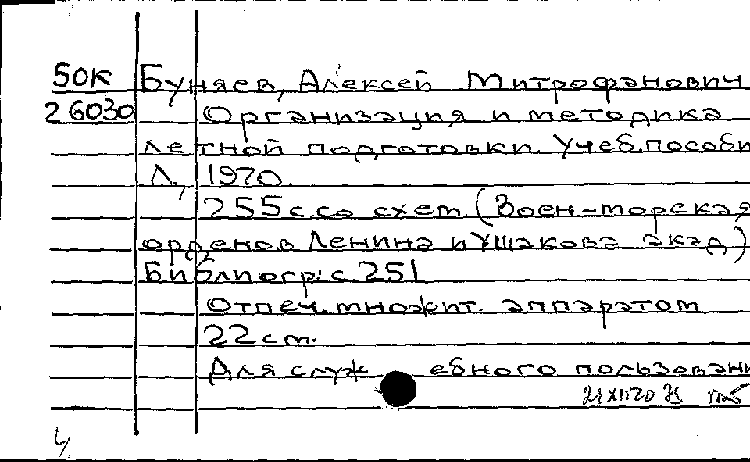 50К Буняев, Алексей Митрофанович
26030 Организация и методика
летной подготовки. Учеб. пособи
Л., 1970.
255 с. со схем (Воен-морская
орденов Ленина и Ушакова акад)
Библиогр: с. 251
Отпеч. множит. аппаратом
22 см.
Для служебного пользовани